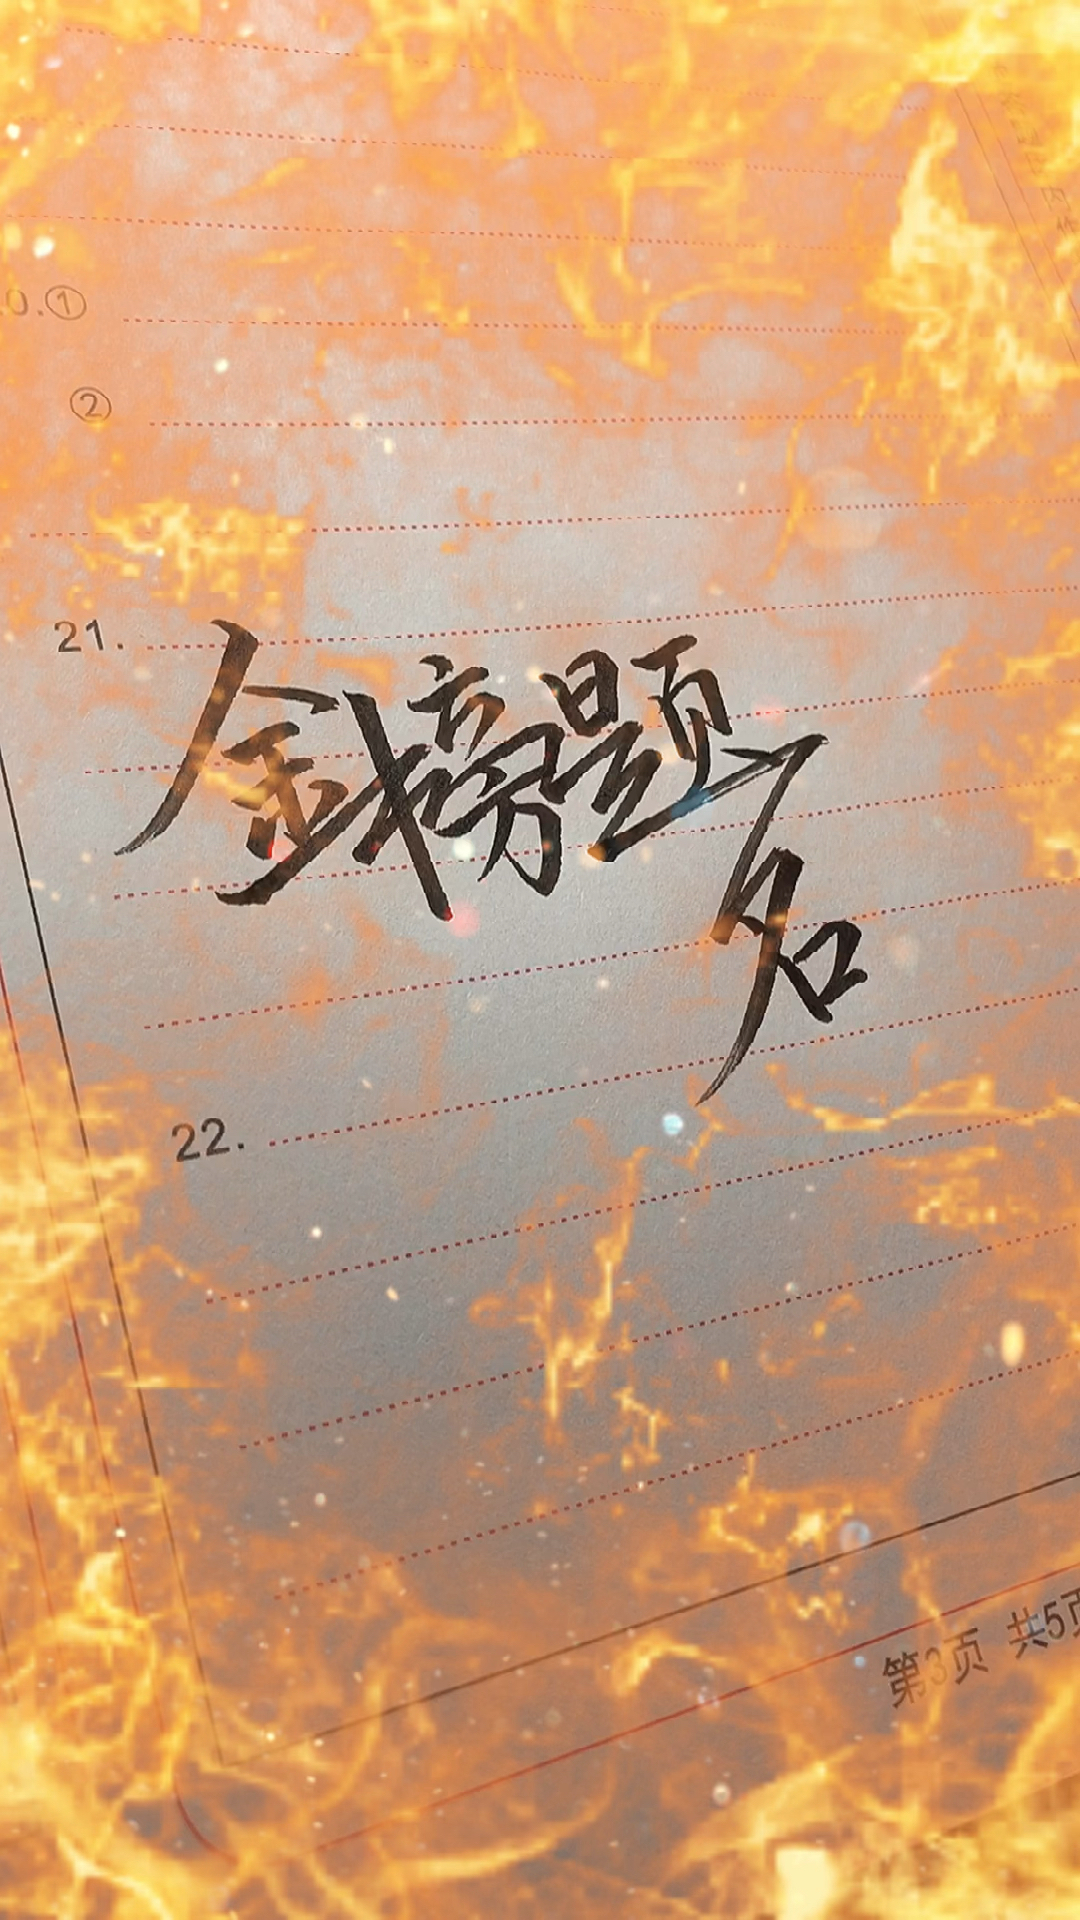 0.①
②
21.
金榜题
名
22.
第3页 共5页